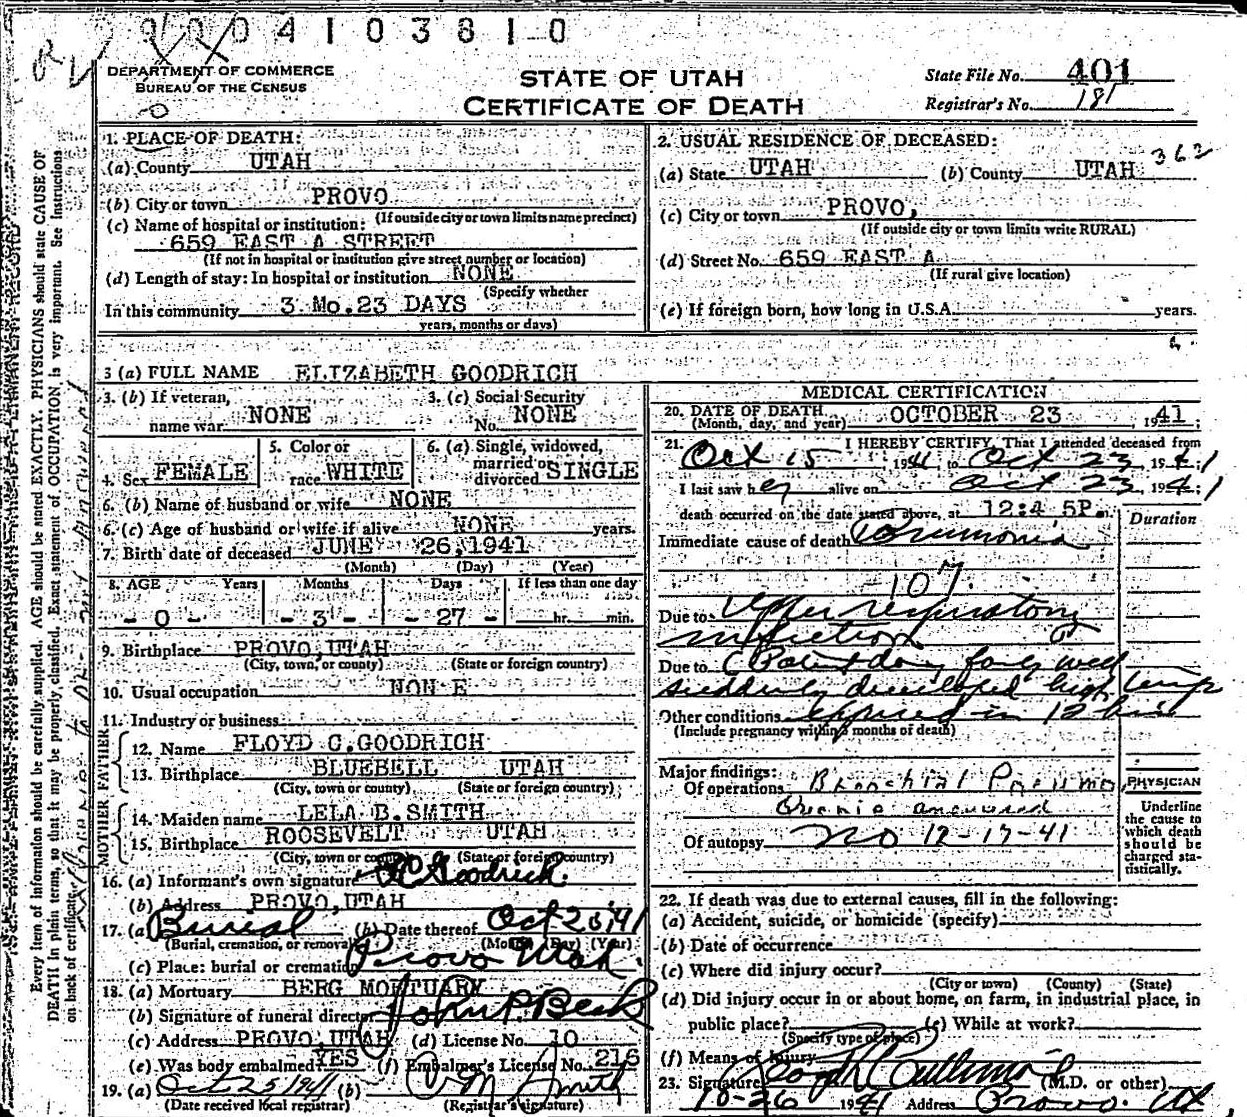 9 0 0 4 1 0 3 8 1 0
DEPARTMENT OF COMMERCE
BUREAU OF THE CENSUS
STATE OF UTAH
CERTIFICATE OF DEATH
State File No. 401
Registrar's No. 181
Every item of information should be carefully supplied. AGE should be stated EXACTLY. PHYSICIANS should state CAUSE OF
DEATH in plain terms, so that it may be properly classified. Exact statement of OCCUPATION is very important. See Instructions
on back of certificate.
1. PLACE OF DEATH:
(a) County UTAH
(b) City or town PROVO
(If outside city or town limits name precinct)
(c) Name of hospital or institution:
659 EAST A STREET
(If not in hospital or institution give street number or location)
(d) Length of stay: In hospital or institution NONE
(Specify whether
In this community 3 Mo. 23 DAYS
years, months or days)
2. USUAL RESIDENCE OF DECEASED:
362
(a) State UTAH (b) County UTAH
(c) City or town PROVO,
(If outside city or town limits write RURAL)
(d) Street No. 659 EAST A
(If rural give location)
(e) If foreign born, how long in U.S.A. years.
3 (a) FULL NAME ELIZABETH GOODRICH
3. (b) If veteran, name war NONE
3. (c) Social Security No. NONE
4. Sex FEMALE
5. Color or race WHITE
6. (a) Single, widowed, married or divorced SINGLE
6. (b) Name of husband or wife NONE
6. (c) Age of husband or wife if alive NONE years.
7. Birth date of deceased JUNE 26, 1941
(Month) (Day) (Year)
8. AGE Years Months Days If less than one day
- 0 - - 3 - - 27 - hr. min.
9. Birthplace PROVO, UTAH
(City, town, or county) (State or foreign country)
10. Usual occupation NONE
11. Industry or business
FATHER
12. Name FLOYD C. GOODRICH
13. Birthplace BLUEBELL UTAH
(City, town or county) (State or foreign country)
MOTHER
14. Maiden name LELA B. SMITH
15. Birthplace ROOSEVELT UTAH
(City, town or county) (State or foreign country)
16. (a) Informant's own signature F C Goodrich.
(b) Address PROVO, UTAH
17. (a) Burial (b) Date thereof Oct 25, 41
(Burial, cremation, or removal) (Month) (Day) (Year)
(c) Place: burial or cremation Provo Utah.
18. (a) Mortuary BERG MORTUARY
(b) Signature of funeral director John P. Beck
(c) Address PROVO, UTAH (d) License No. 10
(e) Was body embalmed? YES (f) Embalmer's License No. 216
19. (a) Oct 25 1941 (b) Smith
(Date received local registrar) (Registrar's signature)
MEDICAL CERTIFICATION
20. DATE OF DEATH OCTOBER 23, 1941;
(Month, day, and year)
21. I HEREBY CERTIFY, That I attended deceased from
Oct 15 1941 to Oct 23, 1941
I last saw her alive on Oct 23, 1941;
death occurred on the date stated above, at 12:45P m.
Duration
Immediate cause of death Pneumonia
107
Due to Upper respiratory
infection
Due to Patient doing fairly well
suddenly developed high temp
Other conditions expired in 12 hrs
(Include pregnancy within 3 months of death)
Major findings:
Of operations Bronchial Pneumo
answered
Of autopsy no 12-17-41
PHYSICIAN
Underline the cause to which death should be charged statistically.
22. If death was due to external causes, fill in the following:
(a) Accident, suicide, or homicide (specify)
(b) Date of occurrence
(c) Where did injury occur?
(City or town) (County) (State)
(d) Did injury occur in or about home, on farm, in industrial place, in
public place? (e) While at work?
(Specify type of place)
(f) Means of Injury
23. Signature (M.D. or other)
10-26 1941 Address Provo. Ut